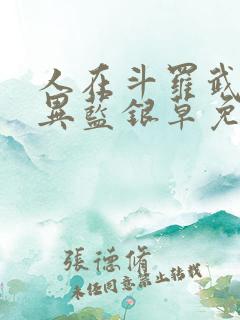 人在斗羅武
異藍銀草免
張德脩
未经同意禁止转载